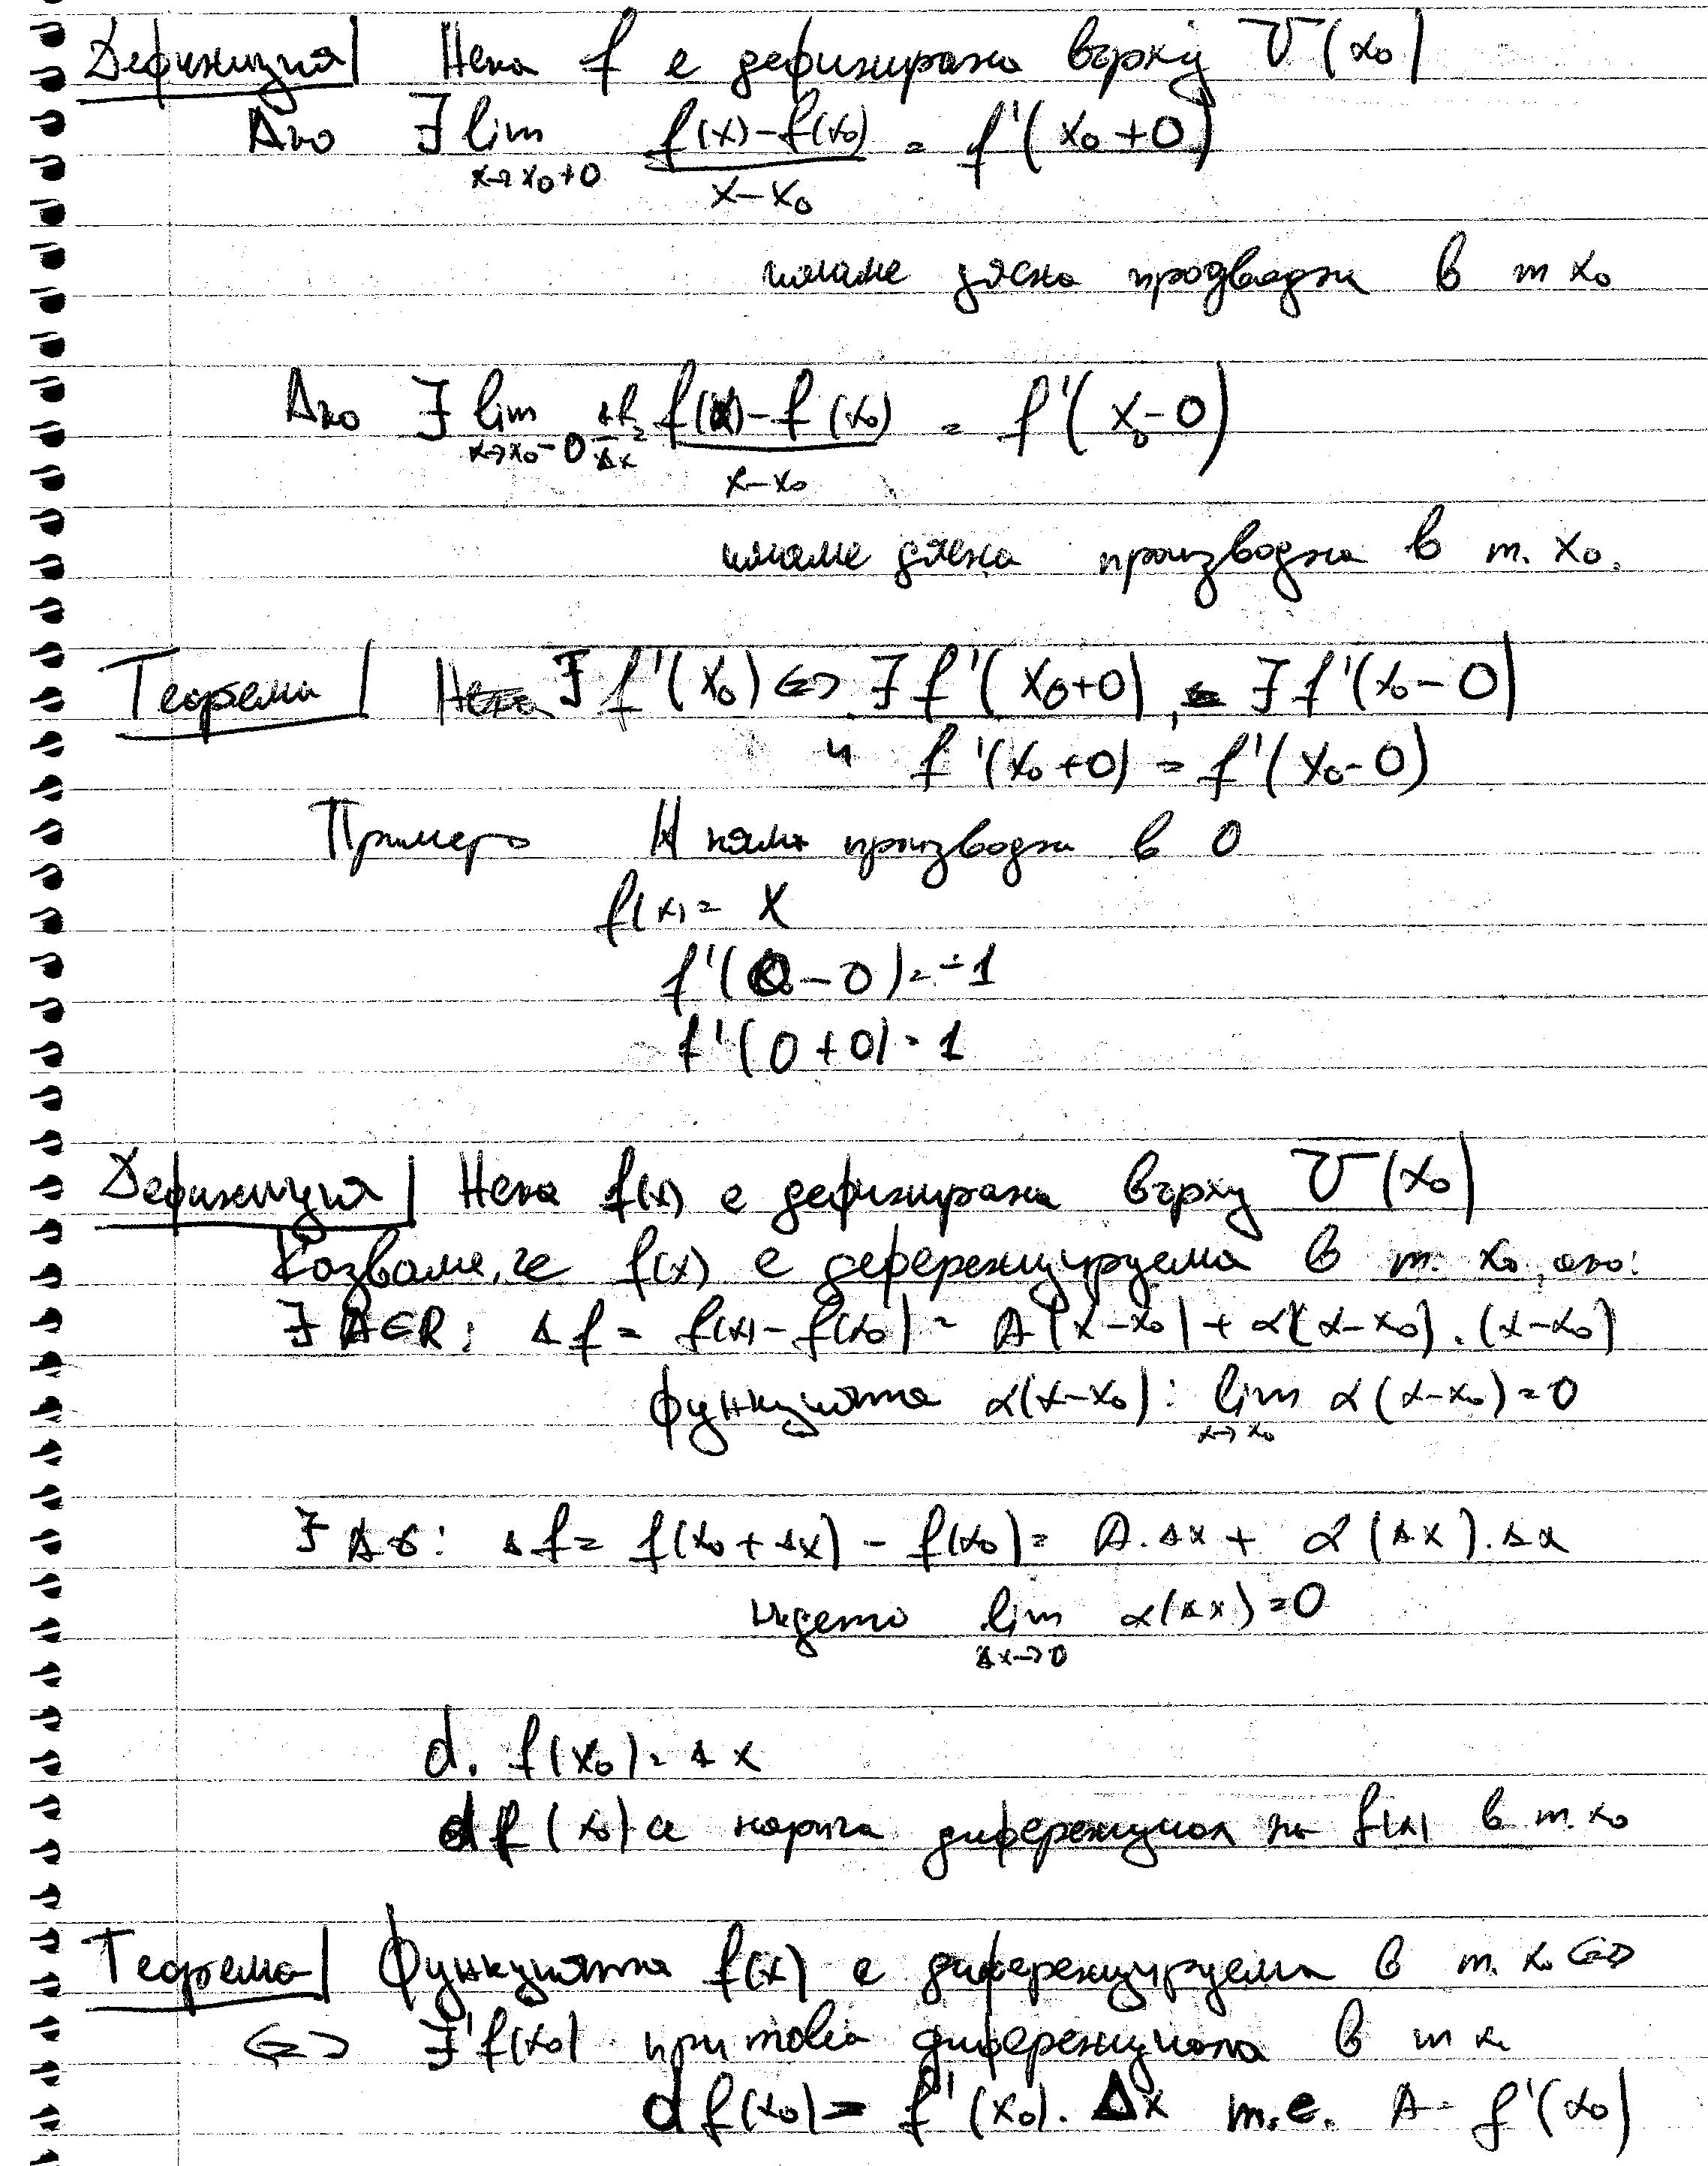 Дефиниция| Нека f е дефинирана върху U(x₀)
Ако ∃ lim x→x₀+0 f(x)-f(x₀) / x-x₀ = f'(x₀+0)
имаме дясна продводна в т x₀
Ако ∃ lim x→x₀-0 Δf/Δx = f(x)-f(x₀) / x-x₀ = f'(x₀-0)
имаме дясна производна в т. x₀.
Теорема| Нека ∃ f'(x₀) <=> ∃ f'(x₀+0), ∃ f'(x₀-0)
и f'(x₀+0) = f'(x₀-0)
Пример няма производна в 0
f(x)= x
f'(0-0)=-1
f'(0+0)=1
Дефиниция| Нека f(x) е дефинирана върху U(x₀)
Казваме, че f(x) е деференцируема в т. x₀, ако:
∃ A∈R: Δf = f(x)-f(x₀) = A(x-x₀)+α(x-x₀).(x-x₀)
функцията α(x-x₀): lim x→x₀ α(x-x₀)=0
∃ A: Δf= f(x₀+Δx) - f(x₀)= A.Δx + α(Δx).Δx
където lim Δx→0 α(Δx)=0
d. f(x₀)=Δx
df(x₀) се нарича диференциал на f(x) в т. x₀
Теорема| Функцията f(x) е диференцируема в т. x₀ <=>
<=> ∃'f(x₀) при това диференциала в т x.
df(x₀)= f'(x₀).Δx т.е. A = f'(x₀)